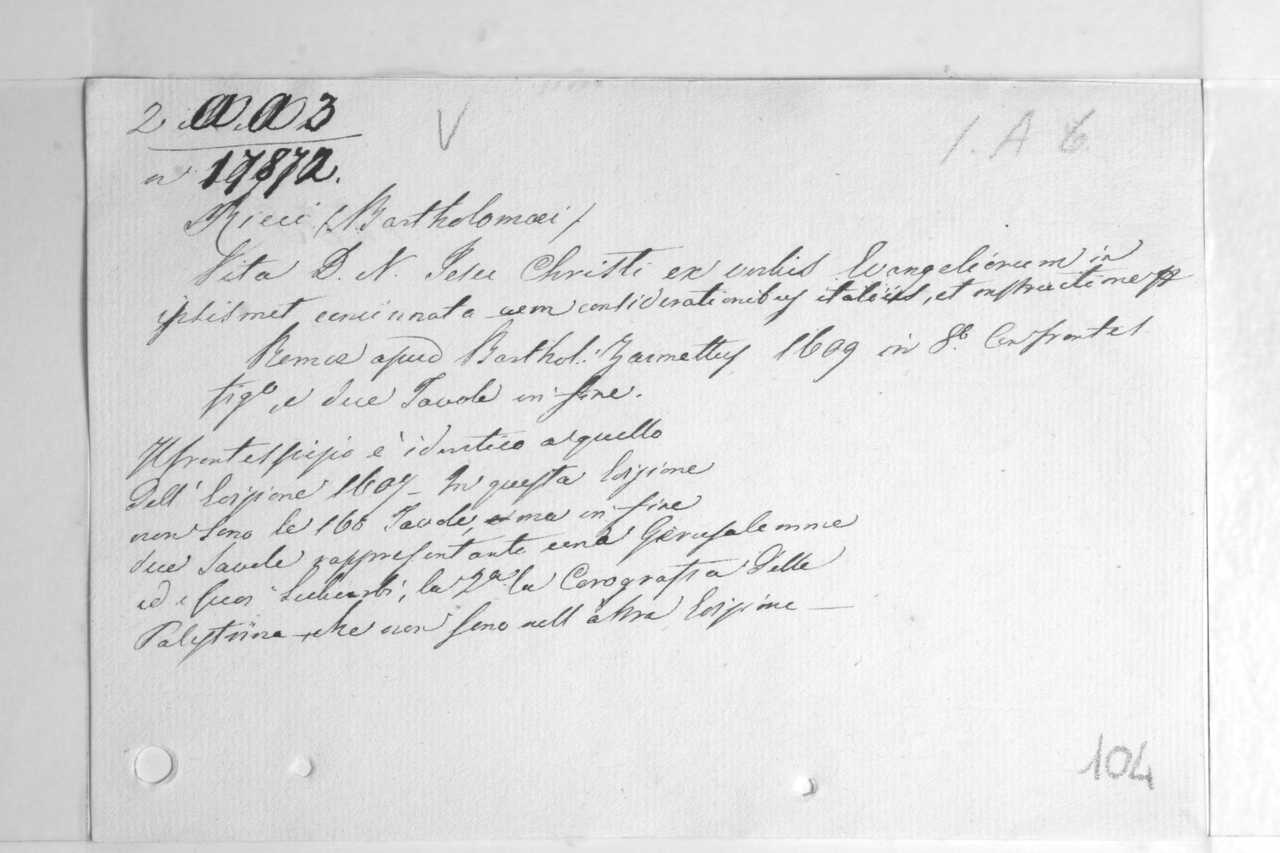 2 a. a 3
V
1. A 6.
n 17872.
Ricci (Bartholomæi)
Vita D. N. Jesu Christi ex verbis Evangeliorum in
ipsismet concinnata cum considerationibus et
Romæ apud Barthol. Zannettus 1609 in 8º. Con frontes
figo, e due Tavole in fine.
Il frontespizio è identico a quello
dell' Edizione 1607 - In questa Edizione
non sono le 160 Tavole, ma in fine
due Tavole rappresentante una Gerusalemme
ed i suoi Suburbi, la 2a. la Corografia della
Palestina - che non sono nell' altra Edizione -
104